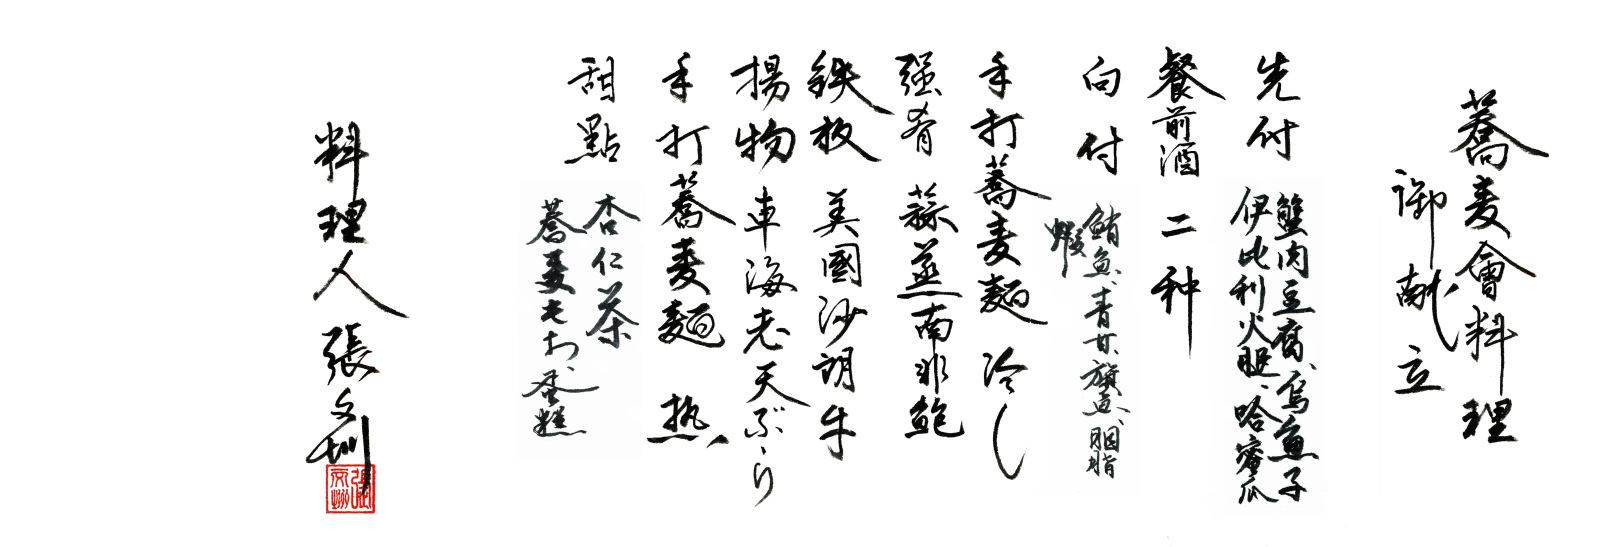 蕎麦會料理
御献立
先付
蟹肉豆腐、烏魚子
伊比利火腿、哈蜜瓜
餐前酒 二种
向付
鮪魚、青甘、旗魚、胭脂
蝦
手打蕎麦麺 冷し
强肴 蒜蒸南非鲍
鉄板 美國沙朗牛
揚物 車海老天ぷり
手打蕎麦麺 热
甜點
杏仁茶
蕎麦
蛋糕
料理人 張文圳